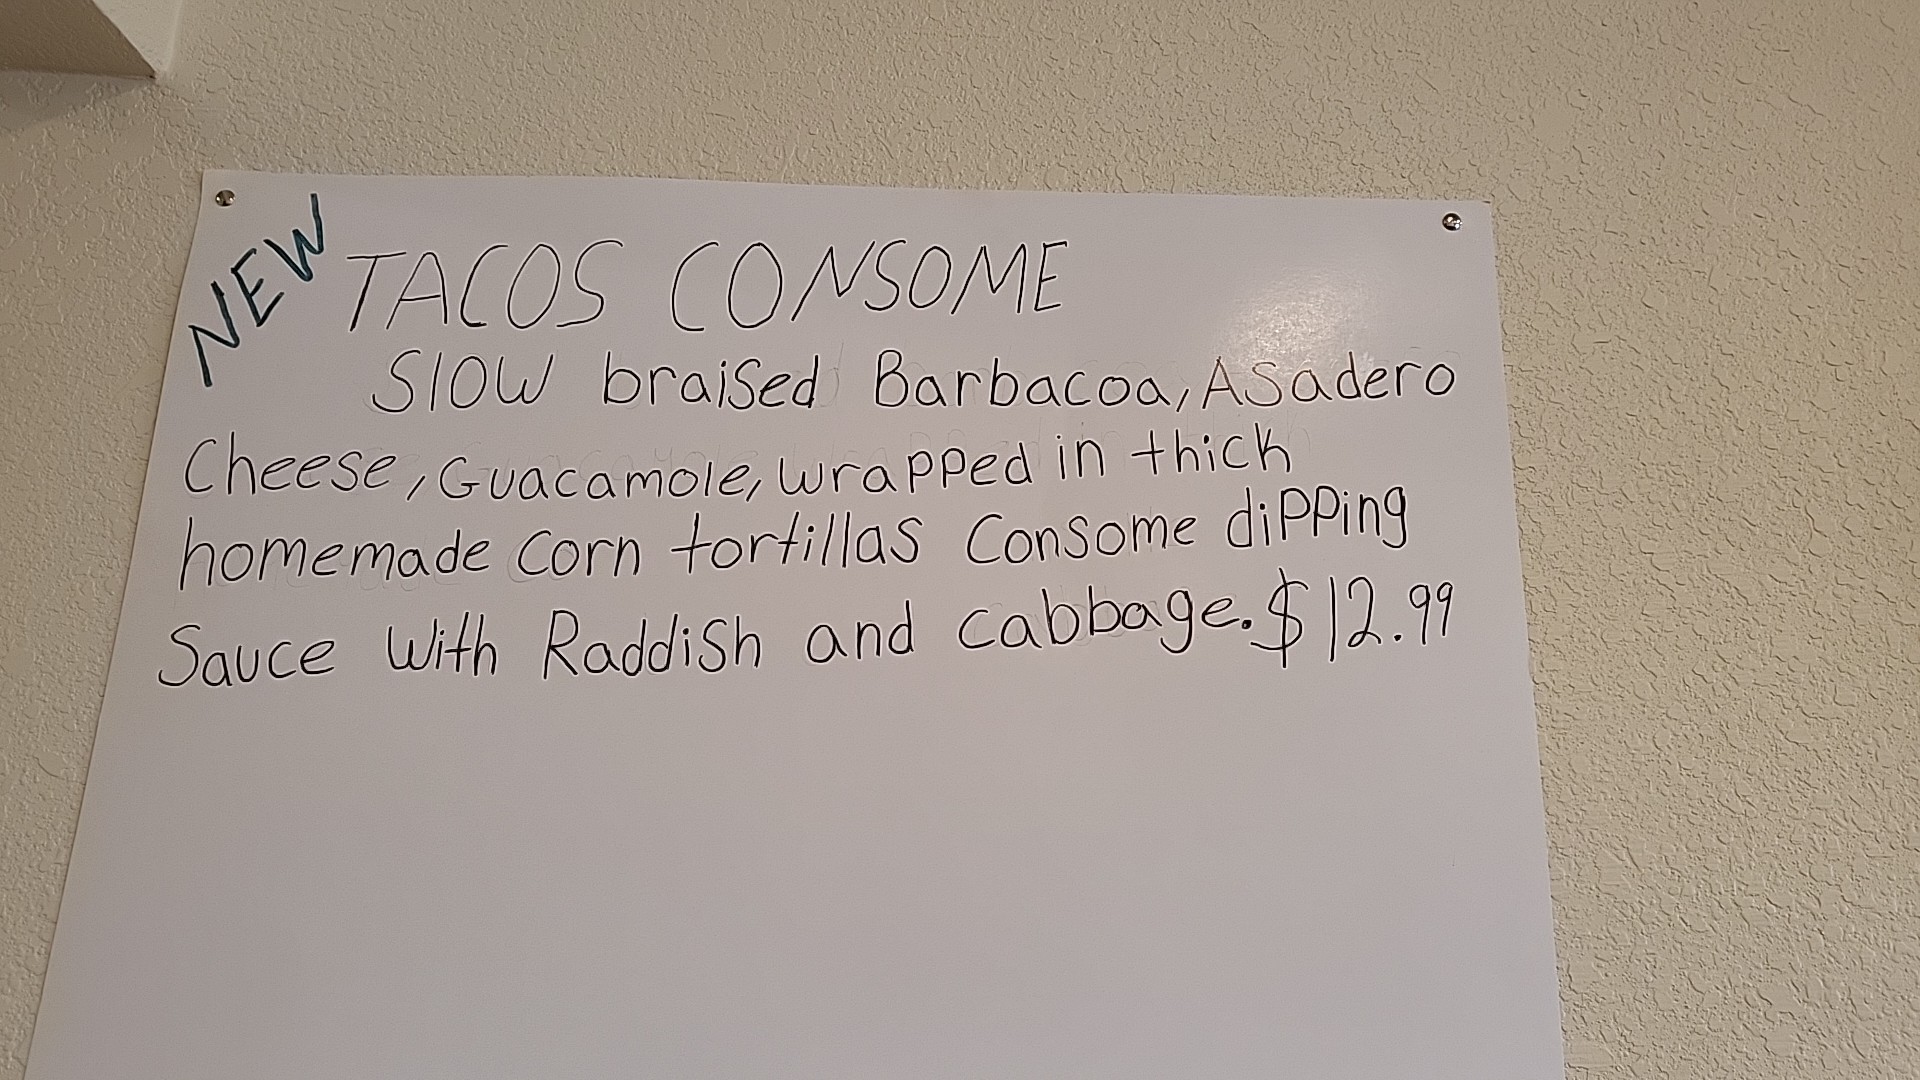 NEW TACOS CONSOME
Slow braised Barbacoa, Asadero
Cheese, Guacamole, wrapped in thick
homemade corn tortillas Consome dipping
Sauce with Raddish and cabbage. $12.99